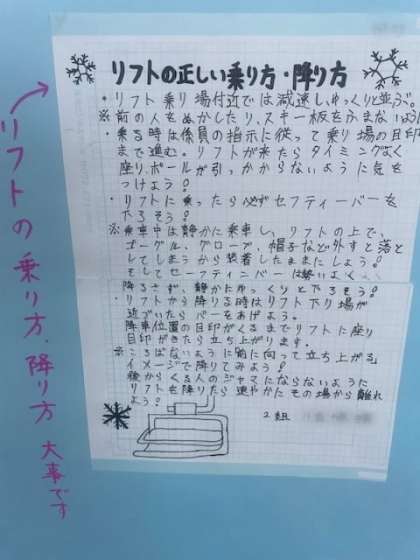 リフトの正しい乗り方・降り方
・リフト乗り場付近では減速し、ゆっくりと並ぶ
※前の人をぬかしたり、スキー板をふまないように
・乗る時は係員の指示に従って乗り場の目印
まで進む。リフトが来たらタイミングよく
座り、ポールが引っかからないように気を
つけよう!
・リフトに乗ったら必ずセフティーバーを
下ろそう!
※乗車中は静かに乗車し、リフトの上で、
ゴーグル、グローブ、帽子など外すと落と
してしまうから装着したままにしよう!
そしてセーフティニバーは勢いよく
降ろさず、静かにゆっくりと下ろそう!
・リフトから降りる時はリフト下り場が
近づいたらバーをあげよう。
降車位置の目印がくるまでリフトに座り
目印がきたら立ち上がります。
※ころばないように前に向って立ち上がる
イメージで降りてみよう!
後からくる人のジャマにならないように
リフトを降りたら速やかにその場から離れ
よう!
2組
リフトの乗り方、降り方 大事です